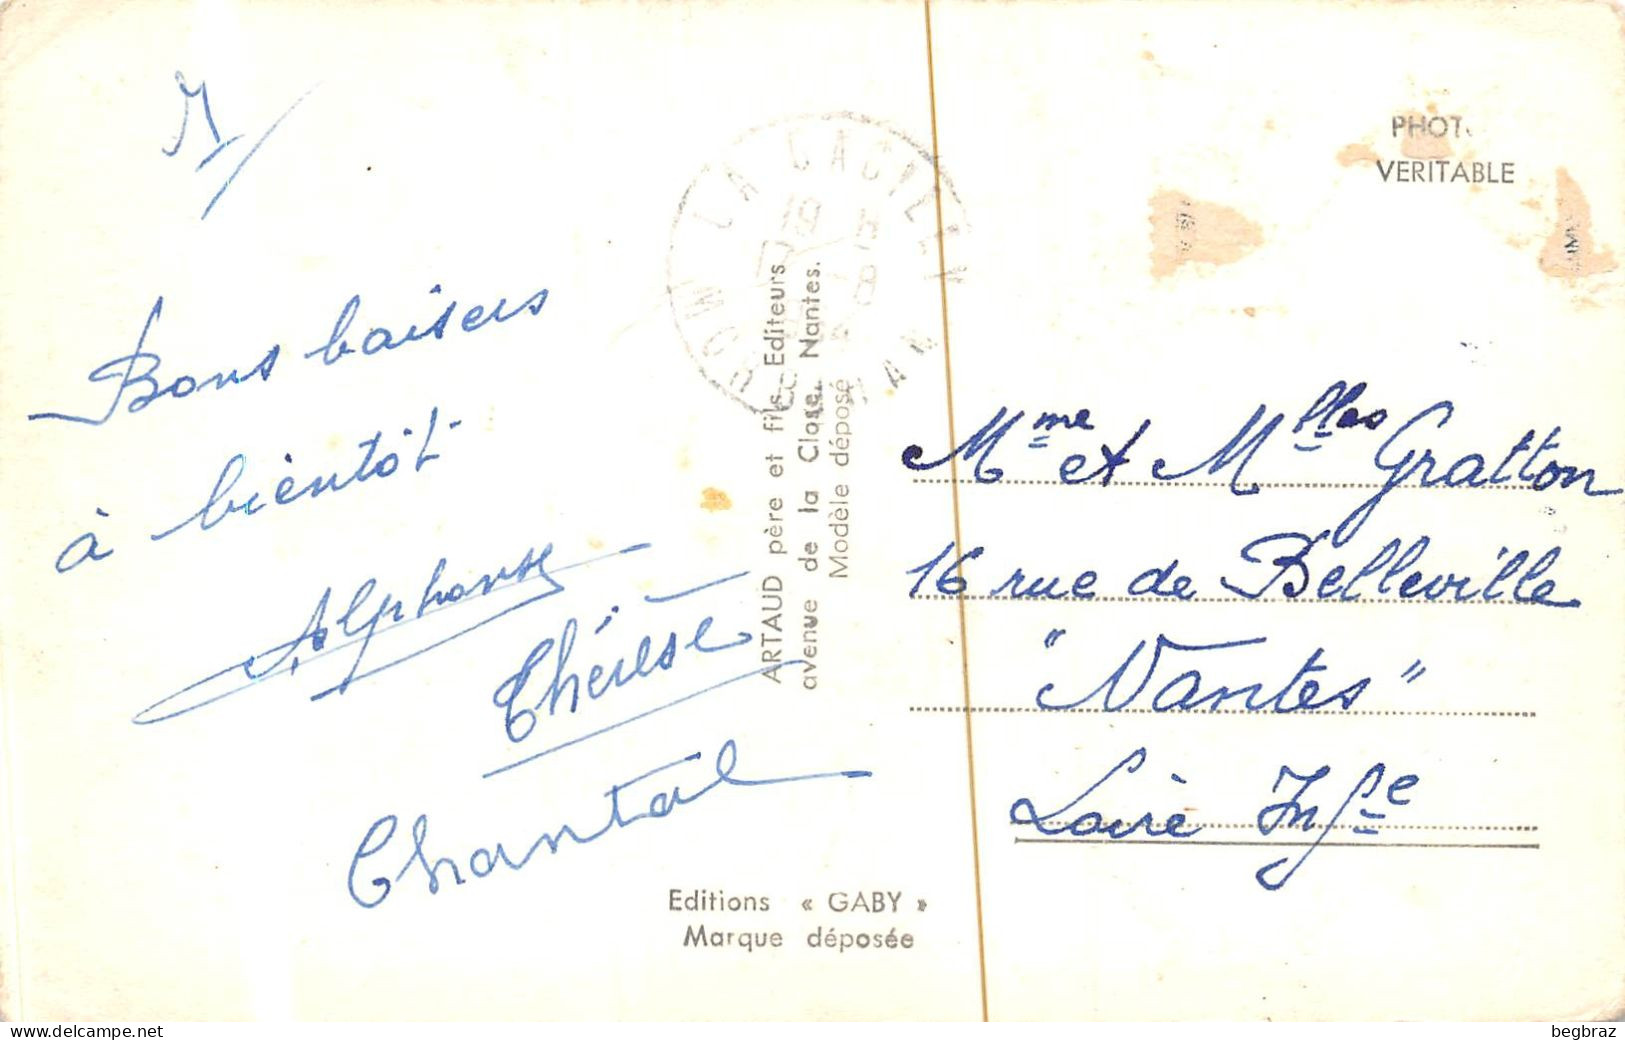 Bons baisers
à bientôt
Alphonse
Thérèse
Chantal
ARTAUD père et fils. Editeurs
avenue de la Close. Nantes.
Modèle déposé
Editions « GABY »
Marque déposée
LA GACILLY
MORBIHAN
PHOTO
VERITABLE
Mme et Mlles Gratton
16 rue de Belleville
"Nantes"
Loire Infe
www.delcampe.net
begbraz